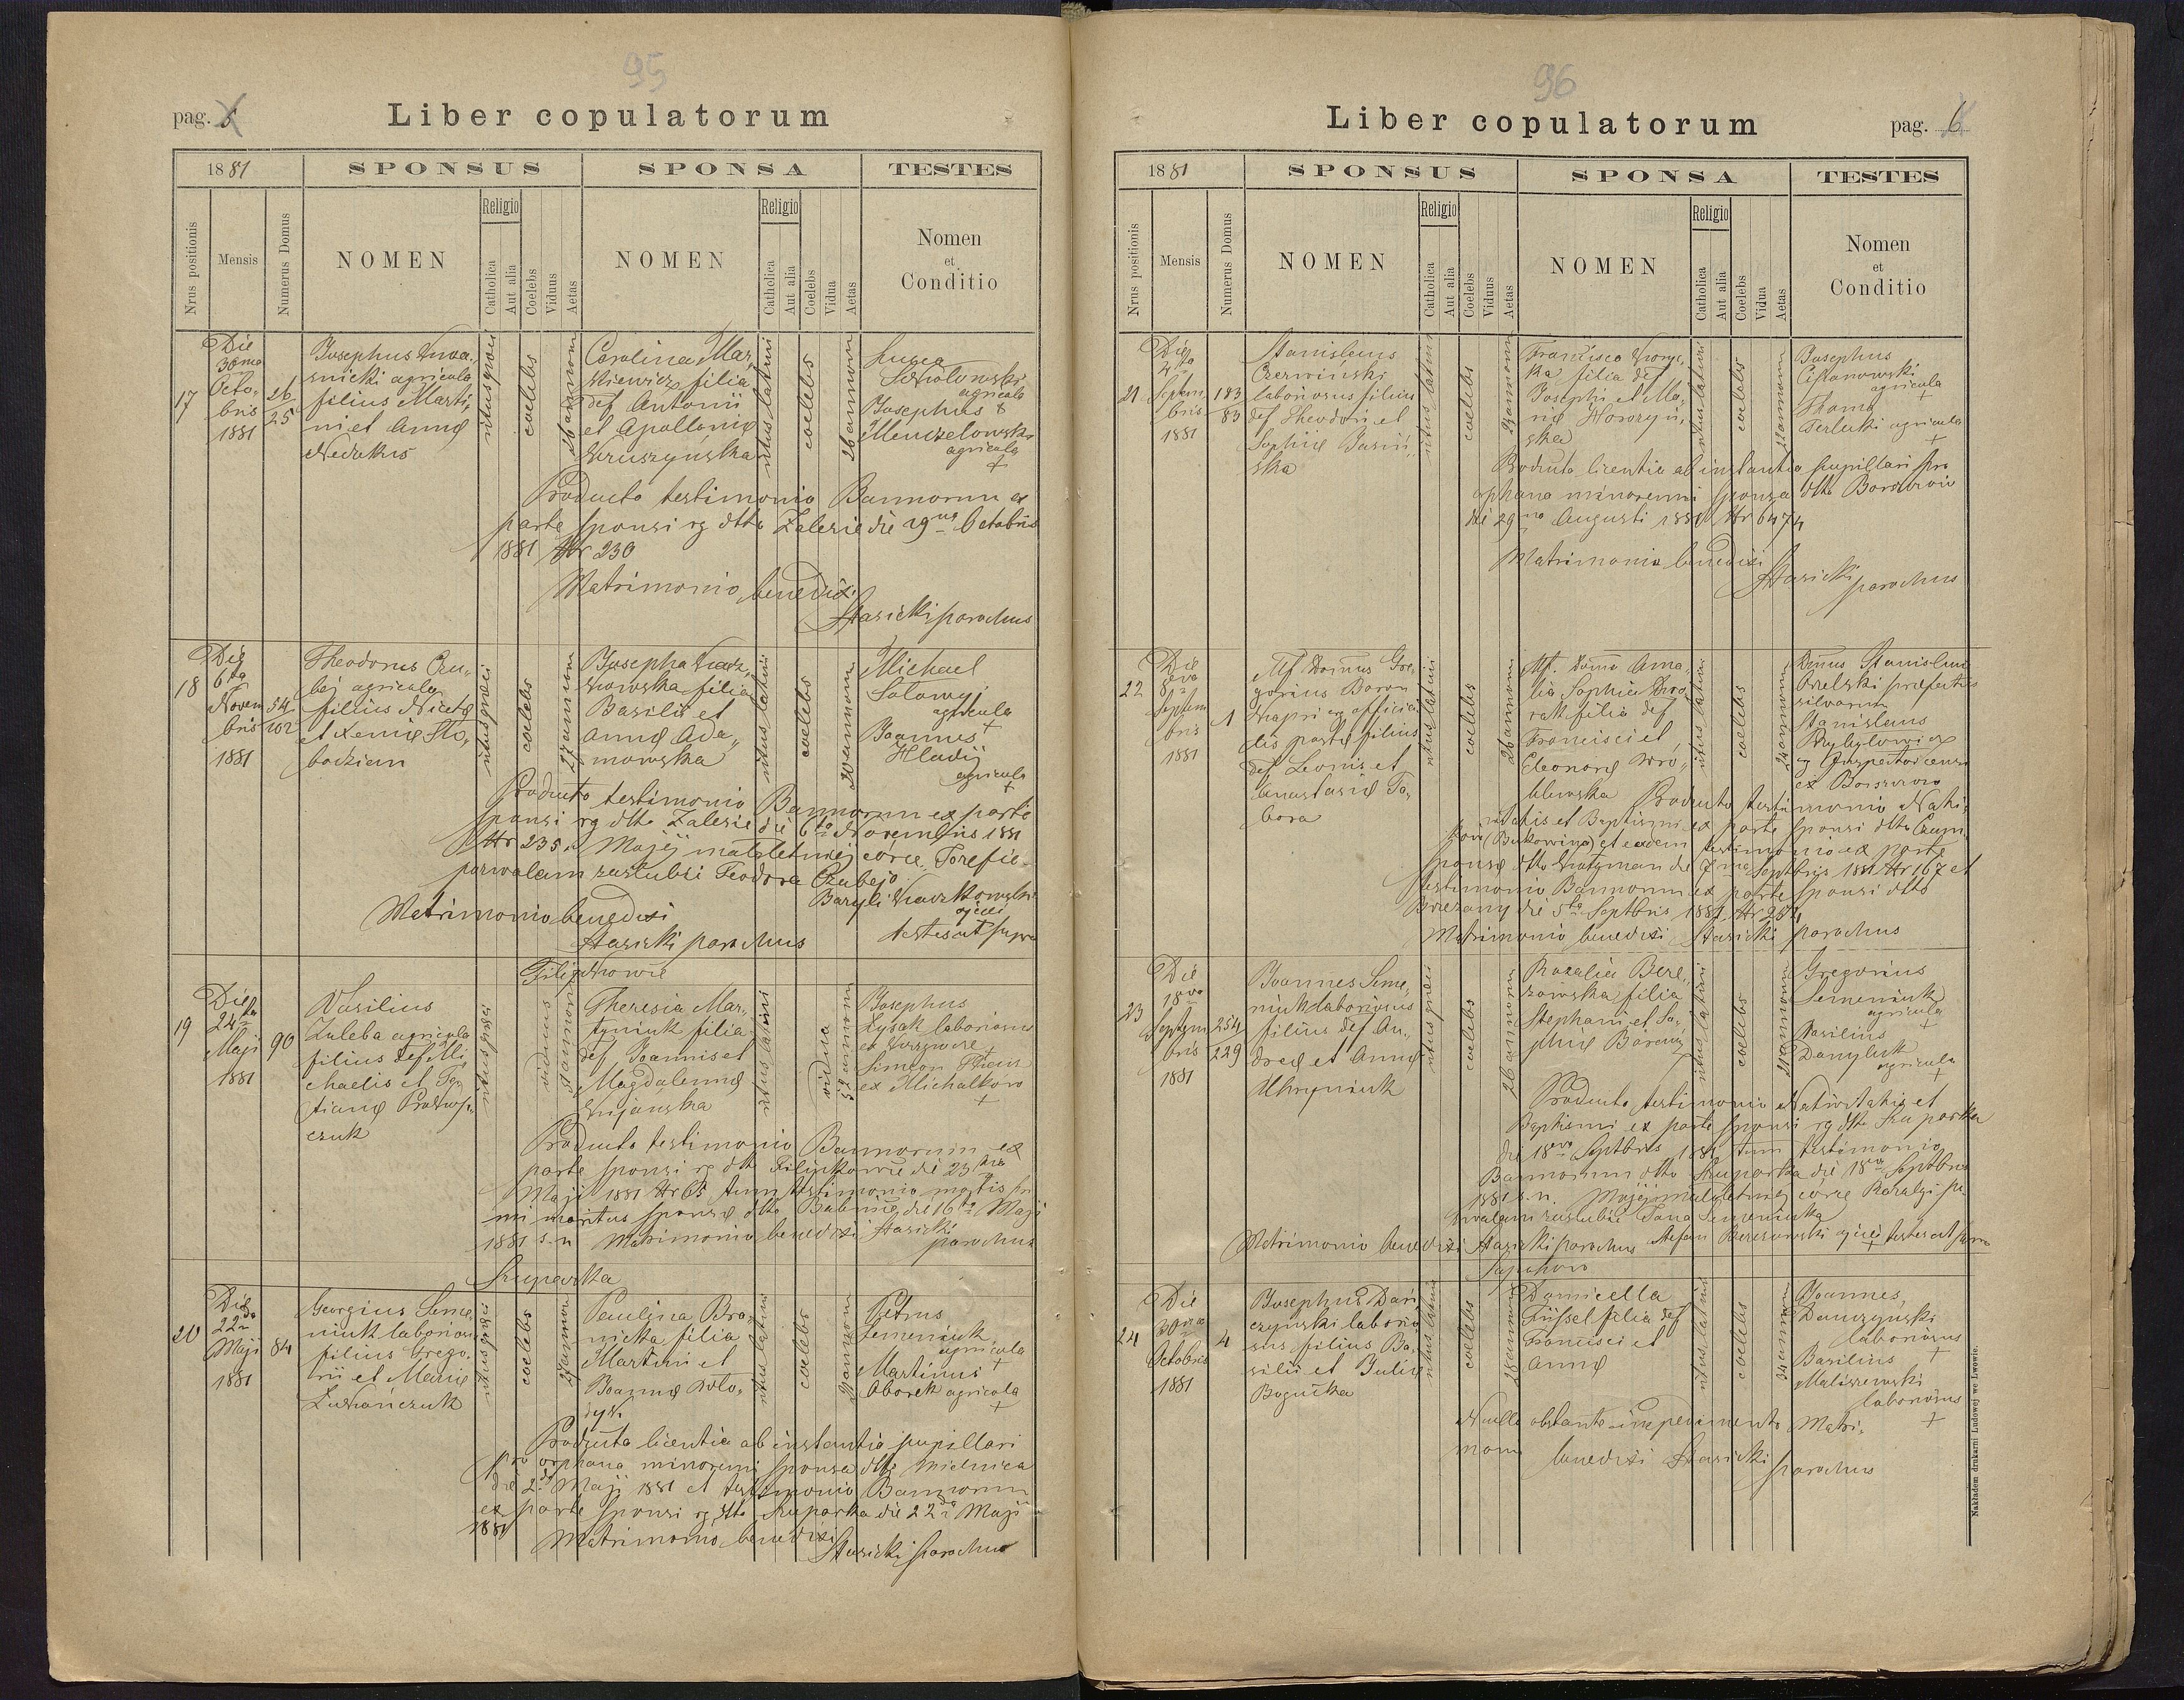 95
pag.
Liber copulatorum
1881
SPONSUS
SPONSA
TESTES
Nrus positionis
Mensis
Numerus Domus
NOMEN
Religio
Catholica
Aut alia
Coelebs
Viduus
Aetas
NOMEN
Religio
Catholica
Aut alia
Coelebs
Vidua
Aetas
Nomen
et
Conditio
17
Die
30ma
Octo-
bris
1881
26
25
Josephus
snicki agricola
filius Marti-
ni et Annae
ritus graeci
coelebs
26 annorum
Carolina Mar-
kiewicz filia
def Antonii
et Apolloniae
Kruszyńska
ritus latini
coelebs
26 annorum
Lucca
Sokolowski
agricola
Josephus +
agricola
+
Producto testimonio Bannorum ex
parte sponsi rg dtto Zalesie die 29na Octobris
1881 Nr 230
Matrimonio benedixi
Stasicki parochus
18
Die
6ta
Novem
bris
1881
54
102
Theodorus Czu-
bej agricola
filius Nicetae
et Xeniae Sło-
bodzian
ritus graeci
coelebs
27 annorum
Josepha
kowska filia
Basilii et
Annae Ada-
mowska
ritus latini
coelebs
20 annorum
Michael
Solowij
agricola
+
Joannes
Hladij
agricola
+
Producto testimonio Bannorum ex parte
sponsi rg dtto Zalesie die 6ta Novembris 1881
Nr 235. Mojej małoletniej córce Jozefie
pozwalam zaslubić Teodora Czubejo
Bazyli
ojciec
Matrimonio benedixi
Stasicki parochus
testes ut supra
19
Filipkowce
Die
24ta
Maji
1881
90
Vasilius
Zuleba agricola
filius def Mi-
chaelis et Ta-
tianae
czuk
ritus graeci
viduus
annorum
Theresia Mar-
tyniuk filia
def Joannis et
Magdalennae
Kujanska
ritus latini
vidua
52 annorum
Josephus
Lysak laboriosus
ex
Simeon
ex Michalkow
+
Producto testimonio Bannorum ex
parte sponsi rg dtto Filipkowce die 23tia
Maji 1881 Nr 65 tum testimonio mortis pri
mi maritus sponsae dtto Babince die 16ta Maji
1881 s.n Matrimonio benedixi Stasicki
parochus
Szuparka
20
Die
22da
Maji
1881
84
Georgius Seme-
niuk laboriosus
filius Grego-
rii et Mariae
Lukańczuk
ritus graeci
coelebs
27 annor
Paulina Bro-
nicka filia
Martini et
Joannae Woło-
dyk
ritus latini
coelebs
annorum
Petrus
Semeniuk
agricola
+
Martinus
Oborek agricola
+
Producta licentia ab instantia pupillari
pro orphana minorenni sponsa dtto Mielnica
die 2da Maji 1881 et testimonio Bannorum
ex parte sponsi rg dtto Szuparka die 22da Maji
1881
Matrimonio benedixi
Stasicki parochus
96
Liber copulatorum
pag. 6
1881
SPONSUS
SPONSA
TESTES
Nrus positionis
Mensis
Numerus Domus
NOMEN
Religio
Catholica
Aut alia
Coelebs
Viduus
Aetas
NOMEN
Religio
Catholica
Aut alia
Coelebs
Vidua
Aetas
Nomen
et
Conditio
21
Die
4ta
Septem
bris
1881
183
83
Stanislaus
Czerwinski
laboriosus filius
def Theodori et
Sophiae Jasiń-
ska
ritus latini
coelebs
annorum
Francisca
ka filia def
Josephi et Ma-
riae Horozyń-
ska
ritus latini
coelebs
annorum
Josephus
Cistanowski
agricola
+
Thoma
Terlecki agricola
+
Producta licentia ab instantia pupillari pro
orphana minorenni sponsa dtto Borszczow
die 29na Augusti 1881 Nr 6474
Matrimonio benedixi
Stasicki
parochus
22
Die
8eva
Septem
bris
1881
1
Mf. Domnus Gre-
gorius Baron
Kapri officia-
lis postae filius
def Leonis et
Anastasiae Ta-
bora
ritus latini
coelebs
26 annorum
Mf. Domna Ama-
lia Sophia
filia def
Francisci et
Eleonorae Wró-
blewska
ritus latini
coelebs
24 annorum
Dmnus Stanislaus
Orelski praefectus
silvarum
Stanislaus
Przybylowicz
ex Borszczow
Producto testimonio Nati-
vitatis et Baptismi ex parte sponsi dtto Czum-
(Bukowina) et eodem testimonio ex parte
sponsae dtto die 7ma Septbris 1881 Nr 167 et
testimonio Bannorum ex parte sponsi dtto
Brzezany die 5ta Septbris 1881 Nr
Matrimonio benedixi Stasicki parochus
23
Die
18va
Septem
bris
1881
254
229
Joannes Seme-
niuk laboriosus
filius def An-
dreae et Annae
Uhryniuk
ritus graeci
coelebs
26 annorum
Rozalia Bere-
zowska filia
Stephani et So-
phiae
ritus latini
coelebs
21 annorum
Gregorius
Semeniuk
agricola
+
Vasilius
Danyluk
agricola
+
Producto testimonio Nativitatis et
Baptismi ex parte sponsi rg dtto Szuparka
die 18va Septbris 1881 tum testimonio
Bannorum dtto Szuparka die 18va Septbris
1881 s.n. Mojej małoletniej córce Rozalji po-
zwalam zaslubić Jana Semeniuka
Matrimonio benedixi Stasicki parochus Stefan Berezowski ojciec testes ut supra
+
24
Die
30ma
Octobris
1881
4
Josephus Dan-
czynski laborio-
sus filius Ba-
silii et Juliae
Bogucka
ritus latini
coelebs
28 annorum
Domicella
Füssel filia def
Francisci et
Annae
ritus latini
coelebs
annorum
Joannes
Danczyński
laboriosus
+
Basilius
Maliszewski
laboriosus
+
Nullo obstante impedimento Matri-
monio benedixi Stasicki
parochus
Nakładem drukarni Ludowej we Lwowie.